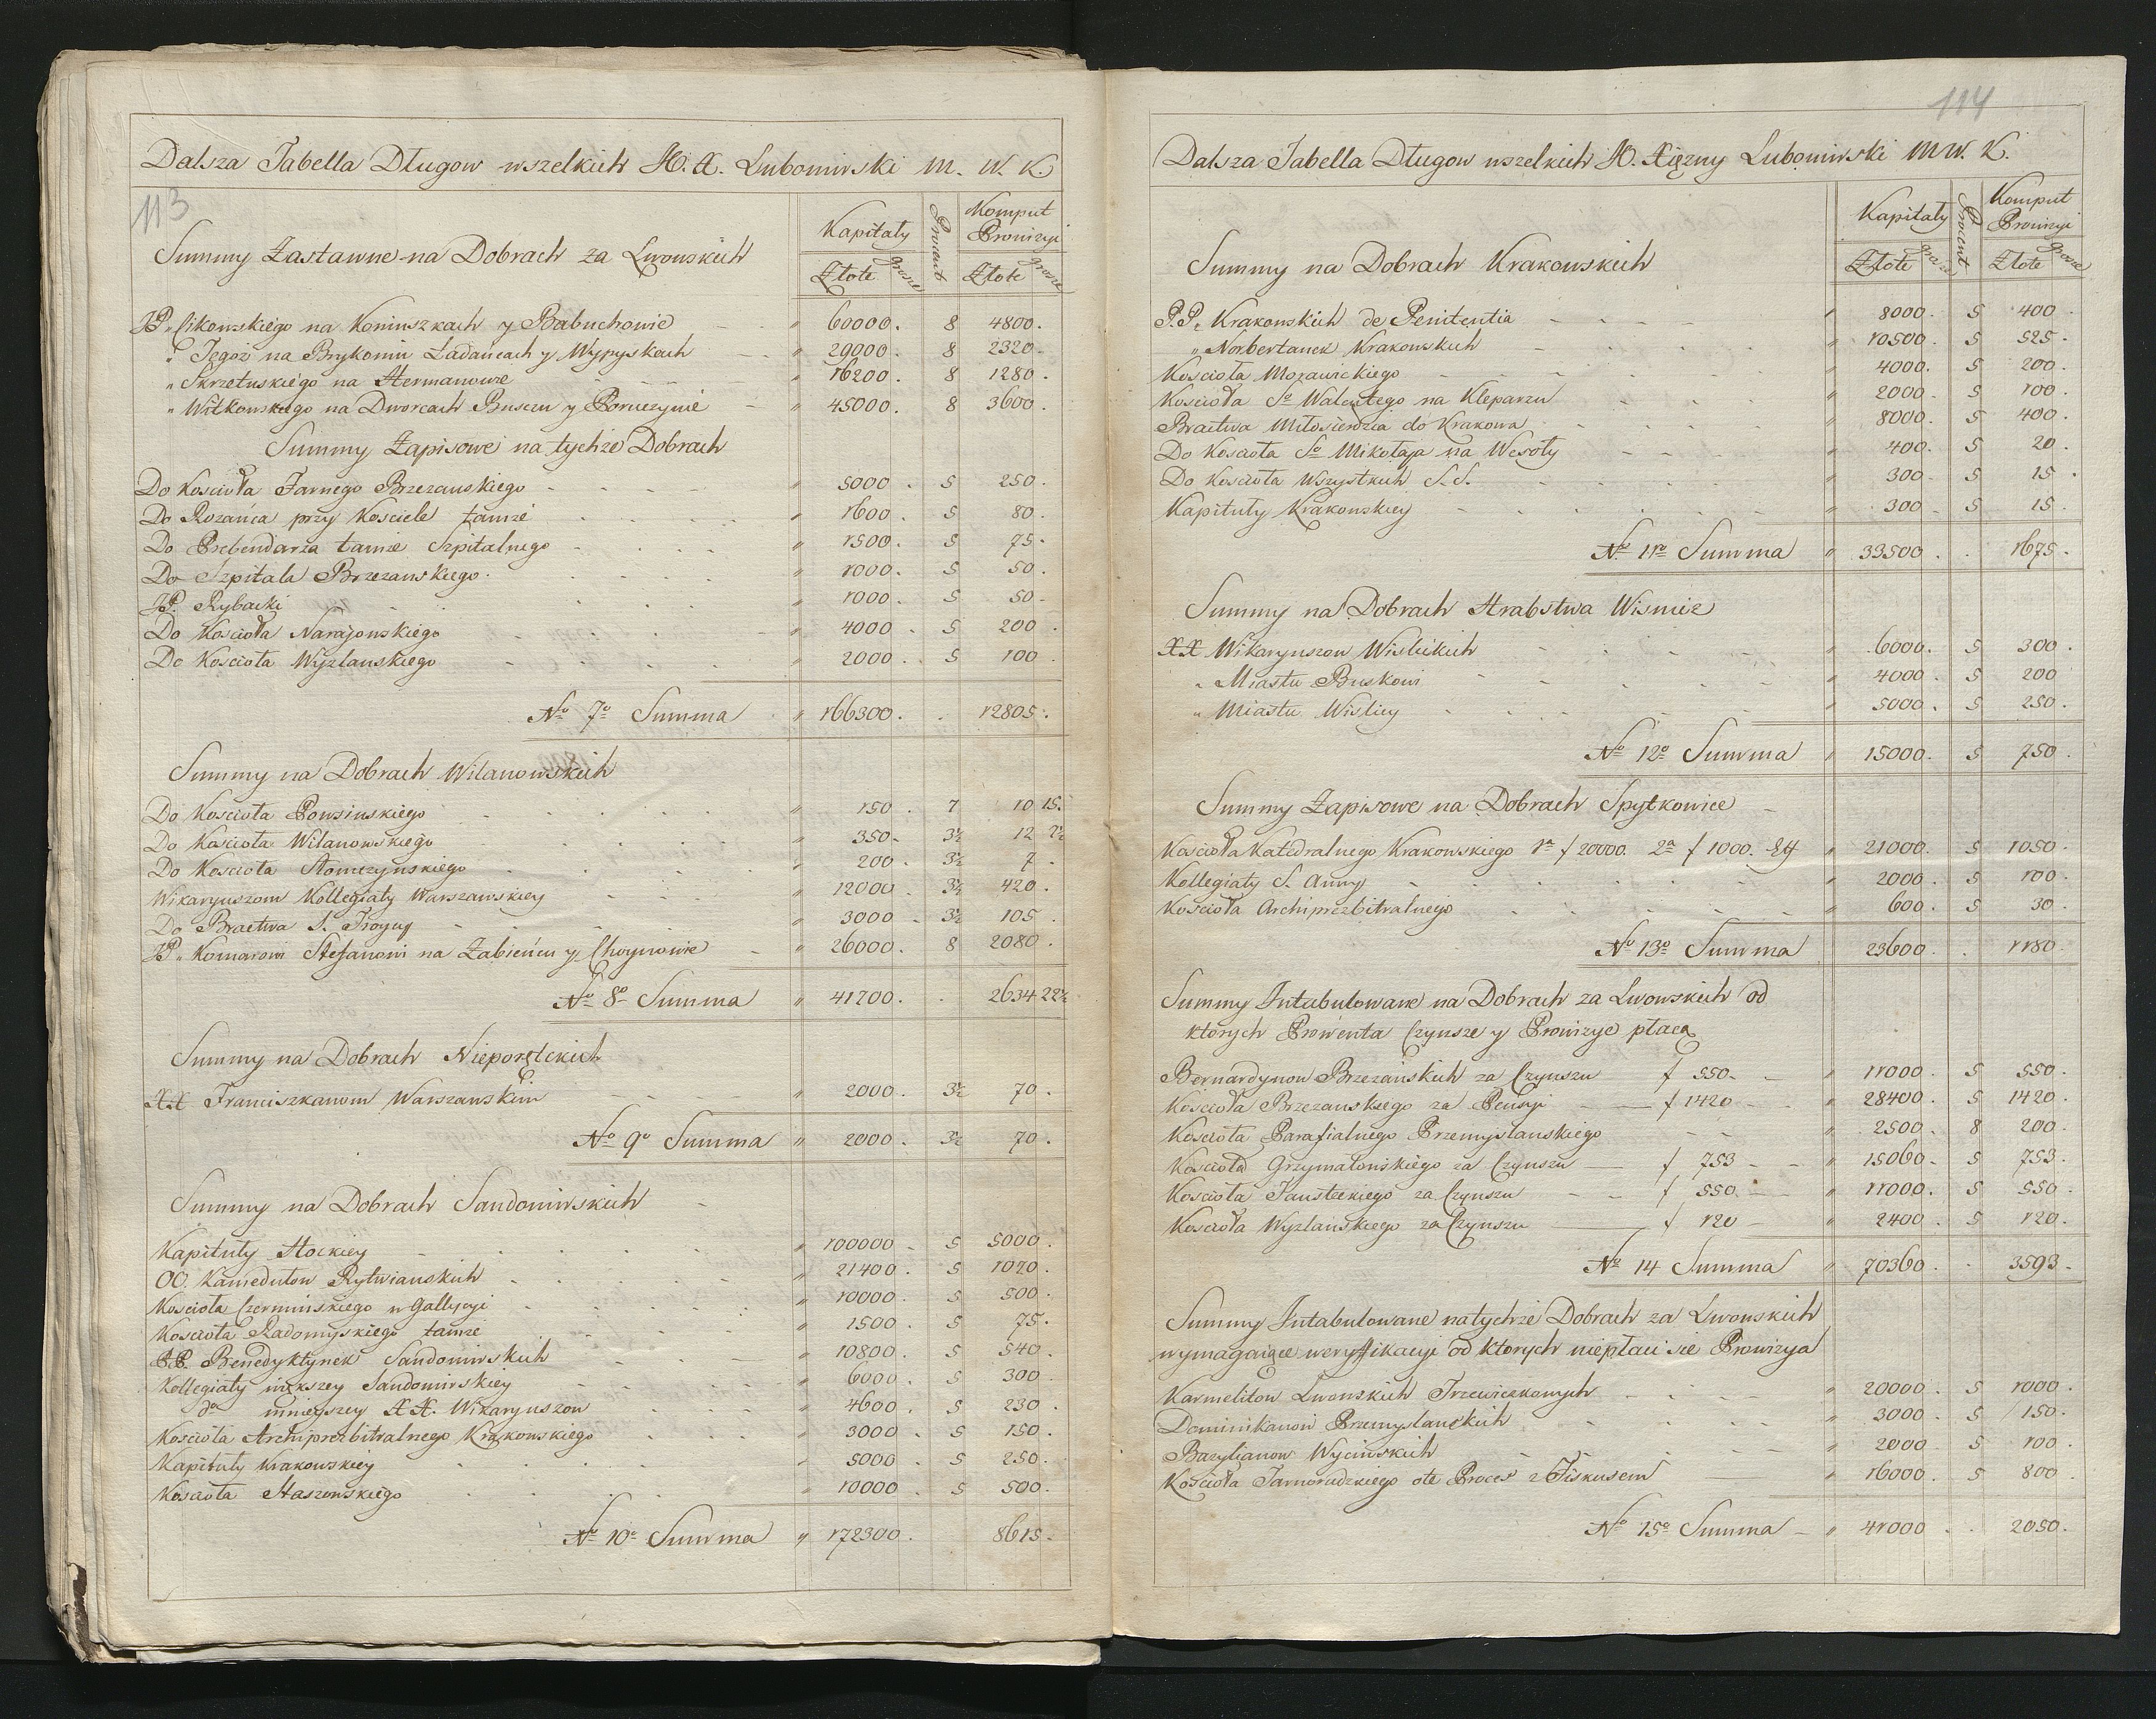 Dalsza Tabella Długow wszelkich JO. X. Lubomirski M. W. K.
113
Kapitały Procent Komput Prowizyi
Złote grosze Złote grosze
Summy Zastawne na Dobrach za Lwowskich
JP. Cikowskiego na Koniuszkach y Babuchowie " 60000. 8 4800.
" Tegoż na Brykoniu Ładańcach y Wypyskach " 29000. 8 2320.
" Skrzetuskiego na Hermanowie " 16200. 8 1280.
" Witkowskiego na Dworcach Buszczu y Poruczynie " 45000. 8 3600.
Summy Zapisowe na tychże Dobrach
Do Kościoła Farnego Brzezanskiego " 5000. 5 250.
Do Rozańca przy Kosciele tamże " 1600. 5 80.
Do Prebendarza tamże Szpitalnego " 1500. 5 75.
Do Szpitala Brzezanskiego " 1000. 5 50.
JP. Rybacki " 1000. 5 50.
Do Kościoła Narajowskiego " 4000. 5 200.
Do Kościoła Wyzlanskiego " 2000. 5 100.
No 7o Summa " 166300. . 12805.
Summy na Dobrach Wilanowskich
Do Kościoła Powsinskiego " 150. 7 10 15.
Do Kościoła Wilanowskiego " 350. 3½ 12 7½
Do Kościoła Słomczynskiego " 200. 3½ 7.
Wikaryuszom Kollegiaty Warszawskiey " 12000. 3½ 420.
Do Bractwa S. Troycy " 3000. 3½ 105.
JP. Komarowi Stefanowi na Żabieńcu y Choynowie " 26000. 8 2080.
No 8o Summa " 41700. . 2634 22½
Summy na Dobrach Nieporętckich
XX Franciszkanom Warszawskim " 2000. 3½ 70.
No 9o Summa " 2000. 3½ 70.
Summy na Dobrach Sandomirskich
Kapituły Płockiey " 100000. 5 5000.
OO. Kamedułow Rytwianskich " 21400. 5 1070.
Kościoła Czermińskiego w Gallycyi " 10000. 5 500.
Kościoła Radomyskiego tamże " 1500. 5 75.
PP. Benedyktynek Sandomirskich " 10800. 5 540.
Kollegiaty większey Sandomirskiey " 6000. 5 300.
do mnieyszey XX. Wikaryuszow " 4600. 5 230.
Kościoła Archiprezbitralnego Krakowskiego " 3000. 5 150.
Kapituły Krakowskiey " 5000. 5 250.
Kościoła Staszowskiego " 10000. 5 500.
No 10o Summa " 172300. 8615.
114
Dalsza Tabella Długow wszelkich JO. Xiężny Lubomirski MW. K.
Kapitały Procent Komput Prowizyi
Złote grosze Złote grosze
Summy na Dobrach Krakowskich
P.P. Krakowskich de Penitentia " 8000. 5 400.
" Norbertanek Krakowskich " 10500. 5 525.
Kościoła Morawickiego " 4000. 5 200.
Kościoła So Walentego na Kleparzu " 2000. 5 100.
Bractwa Miłosierdzia do Krakowa " 8000. 5 400.
Do Kościoła So Mikołaja na Wesoły " 400. 5 20.
Do Kościoła Wszystkich S.S. " 300. 5 15.
Kapituły Krakowskiey " 300 5 15.
No 11o Summa " 33500. . 1675.
Summy na Dobrach Hrabstwa Wisnicz
XX Wikaryuszow Wislickich " 6000. 5 300.
" Miastu Buskowi " 4000. 5 200
" Miastu Wislicy " 5000. 5 250.
No 12o Summa " 15000. 5 750.
Summy Zapisowe na Dobrach Spytkowice
Kościoła Katedralnego Krakowskiego 1a f 20000. 2a f 1000. " 21000. 5 1050.
Kollegiaty S. Anny " 2000. 5 100.
Kościoła Archiprezbitralnego " 600. 5 30.
No 13o Summa " 23600. . 1180.
Summy Intabulowane na Dobrach za Lwowskich od
ktorych Prowenta Czynsze y Prowizye płacą
Bernardynow Brzezańskich za Czynszu f 550 " 11000. 5 550.
Kościoła Brzezanskiego za Pensyi f 1420 " 28400. 5 1420.
Kościoła Parafialnego Przemyslanskiego " 2500. 8 200.
Kościoła Grzymałowskiego za Czynszu f 753 " 15060. 5 753.
Kościoła Tausteckiego za Czynszu f 550 " 11000. 5 550.
Kościoła Wyzlańskiego za Czynszu f 120 " 2400. 5 120.
No 14 Summa " 70360. . 3593.
Summy Intabulowane na tychże Dobrach za Lwowskich
wymagaiące weryffikacyi od ktorych niepłaci się Prowizya
Karmelitow Lwowskich Trzewiczkowych " 20000. 5 1000.
Dominikanow Przemyslanskich " 3000. 5 150.
Bazylianow Wycinskich " 2000 5 100.
Kościoła Tarnorudzkiego ote Proces z Fiskusem " 16000. 5 800.
No 15o Summa " 41000 . 2050.